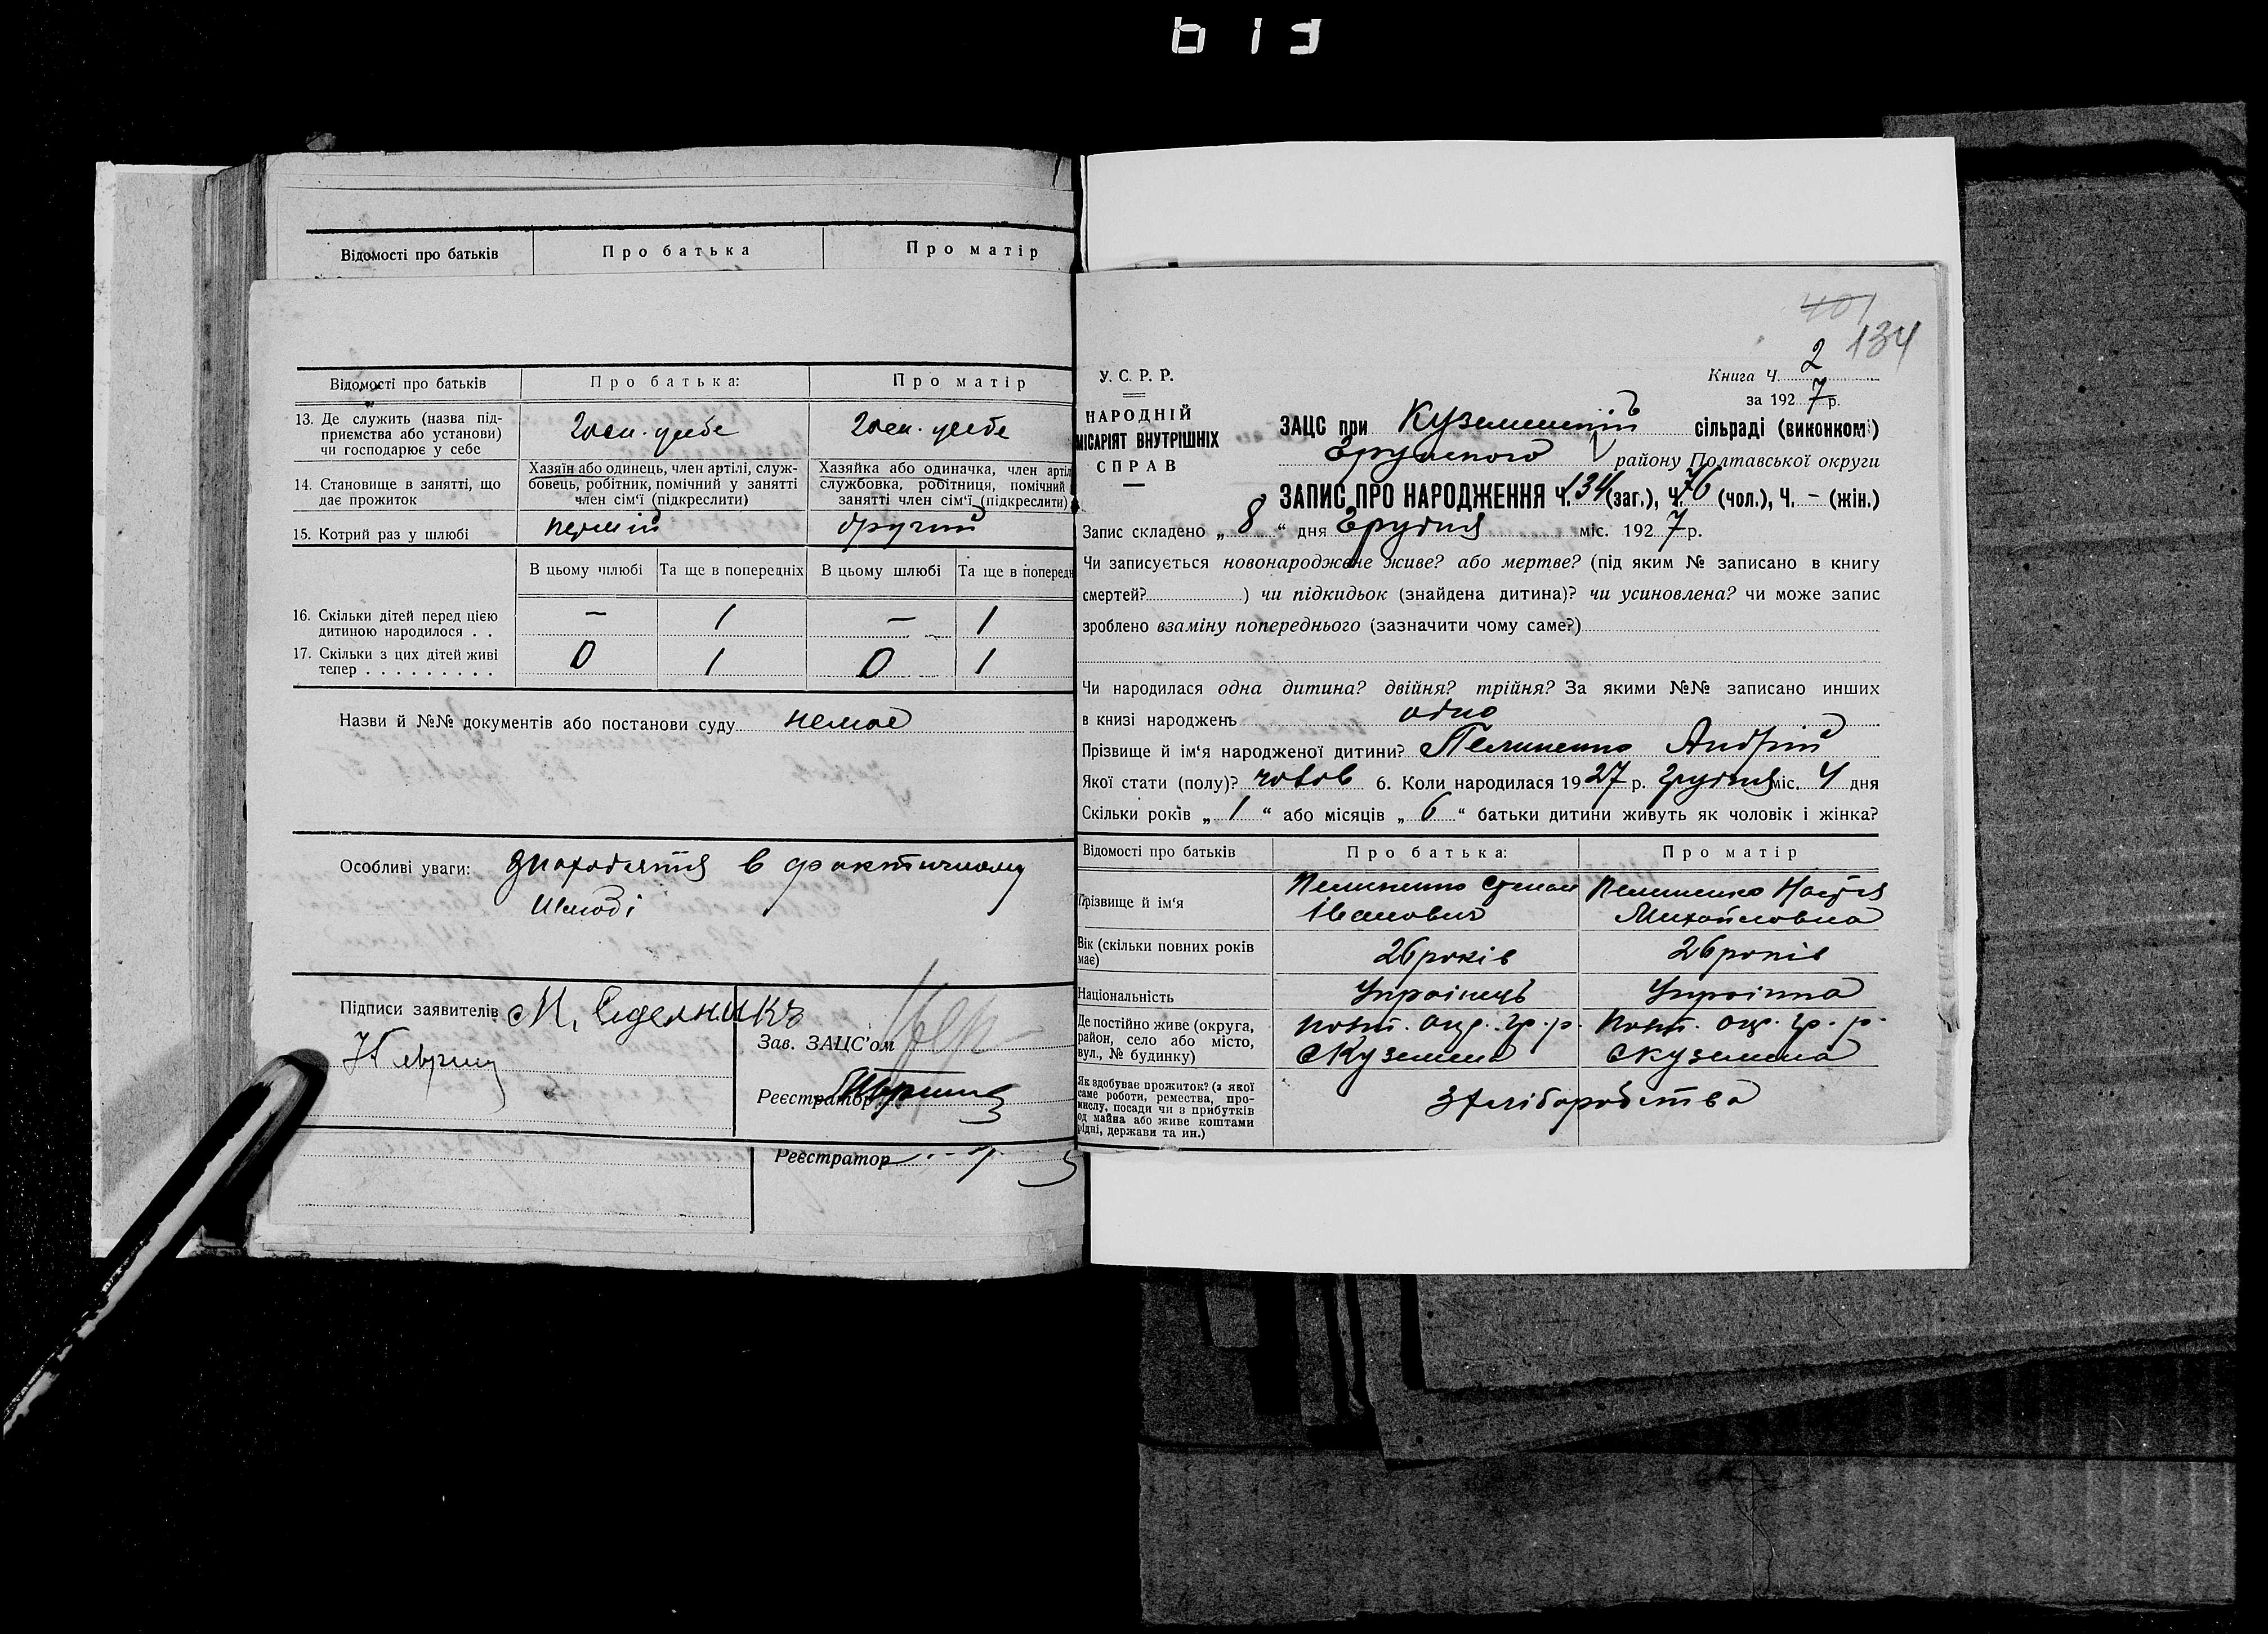 Відомості про батьків Про батька Про матір
Відомості про батьків Про батька: Про матір
13. Де служить (назва підприємства або установи) чи господарює у себе
14. Становище в занятті, що дає прожиток
Хазяїн або одинець, член артілі, службовець, робітник, помічний у занятті член сім‘ї (підкреслити)
Хазяйка або одиначка, член артіл службовка, робітниця, помічний занятті член сім‘ї (підкреслити)
15. Котрий раз у шлюбі перший другий
В цьому шлюбі Та ще в попередніх В цьому шлюбі Та ще в поперед
16. Скільки дітей перед цією дитиною народилося . . – 1 – 1
17. Скільки з цих дітей живі тепер . . . . . . . . . 0 1 0 1
Назви й №№ документів або постанови суду немає
Особливі уваги: знаходятся в фактичному
шлюбі
Підписи заявителів
Зав. ЗАЦС’ом
Реєстратор
Реєстратор
401
134
У. С. Р. Р.
НАРОДНІЙ
МІСАРІЯТ ВНУТРІШНІХ
СПРАВ
Книга Ч. 2
за 1927 р.
ЗАЦС при сільраді (виконком)
Грунського району Полтавської округи
ЗАПИС ПРО НАРОДЖЕННЯ Ч. 134 (заг.), Ч. 76 (чол.), Ч. – (жін.)
Запис складено „ 8 “ дня Грудня міс. 1927 р.
Чи записується новонароджене живе? або мертве? (під яким № записано в книгу
смертей? ) чи підкидьок (знайдена дитина)? чи усиновлена? чи може запис
зроблено взаміну попереднього (зазначити чому саме?)
Чи народилася одна дитина? двійня? трійня? За якими №№ записано инших
в книзі народжень одно
Прізвище й ім‘я народженої дитини? Андрій
Якої стати (полу)? чолов 6. Коли народилася 1927 р. грудня міс. 4 дня
Скільки років „ 1 “ або місяців „ 6 “ батьки дитини живуть як чоловік і жінка?
Відомості про батьків Про батька: Про матір
Прізвище й ім‘я
Степан Іванович
Настя Михайловна
Вік (скільки повних років має) 26 років 26 років
Національність Українець Українка
Де постійно живе (округа, район, село або місто, вул., № будинку)
Полт. окр. гр. р. с Куземина
Полт. окр. гр. р. с Куземина
Як здобуває прожиток? (з якої саме роботи, ремества, промислу, посади чи з прибутків од майна або живе коштами рідні, держави та ин.)
З хліборобства